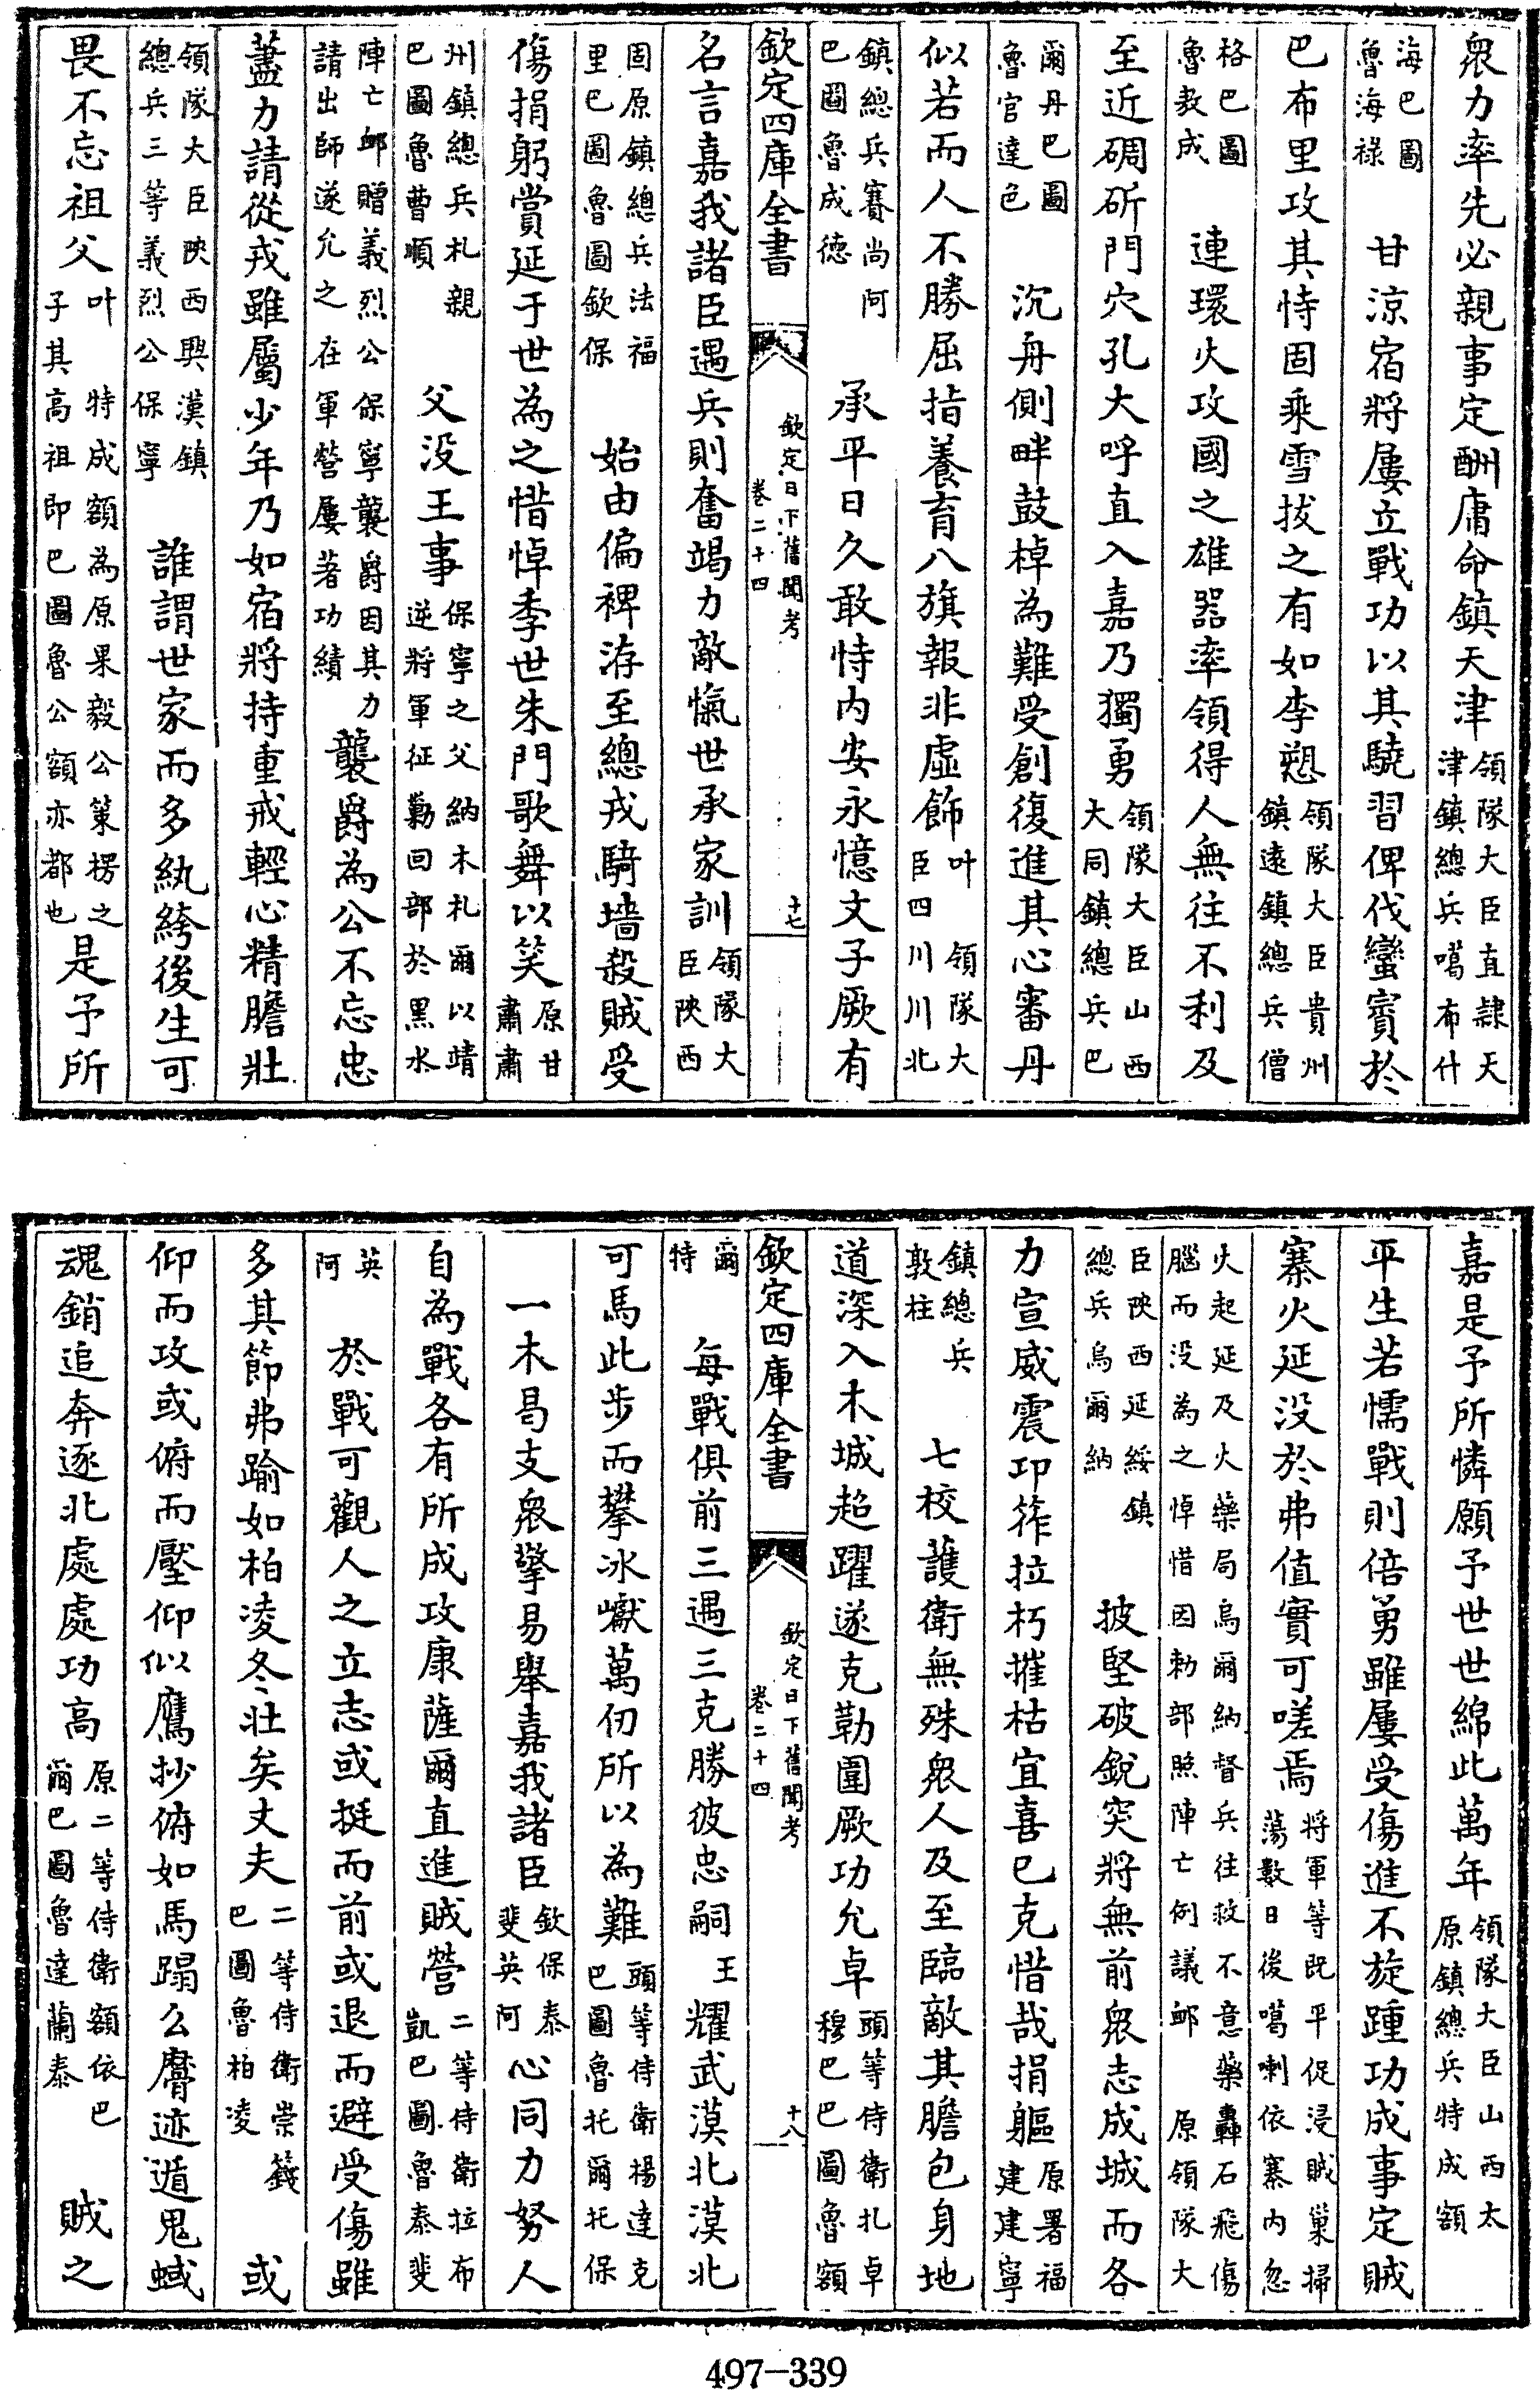 衆力率先必親事定酬庸命鎮天津領隊大臣直隷天津鎮總兵噶布什
海巴圖魯海祿　甘涼宿將屢立戰功以其驍習俾伐蠻賨於
巴布里攻其恃固乘雪拔之有如李愬領隊大臣貴州鎮遠鎮總兵僧
格巴圖魯敖成　連環火攻國之雄器率領得人無往不利及
至近碉斫門穴孔大呼直入嘉乃獨勇領隊大臣山西大同鎮總兵巴
爾丹巴圖魯官達色　沉舟側畔鼓棹為難受創復進其心審丹
似若而人不勝屈指養育八旗報非虛飾叶　領隊大臣四川川北
鎮總兵賽尚阿巴圖魯成德　承平日久敢恃内安永憶文子厥有
欽定四庫全書　欽定日下舊聞考卷二十四　十七
名言嘉我諸臣遇兵則奮竭力敵愾世承家訓領隊大臣陝西
固原鎮總兵法福里巴圖魯圖欽保　始由偏裨洊至總戎騎墻殺賊受
傷捐躬賞延于世為之惜悼季世朱門歌舞以笑原甘肅肅
州鎮總兵札親巴圖魯曹順　父没王事保寧之父納木札爾以靖逆將軍征勦回部於黑水
陣亡䘏贈義烈公保寧襲爵因其力請出師遂允之在軍營屢著功績襲爵為公不忘忠
藎力請從戎雖屬少年乃如宿將持重戒輕心精膽壯
領隊大臣陝西興漢鎮總兵三等義烈公保寧　誰謂世家而多紈絝後生可
畏不忘祖父叶　特成額為原果毅公策楞之子其高祖即巴圖魯公額亦都也是予所
嘉是予所憐願予世世綿此萬年領隊大臣山西太原鎮總兵特成額
平生若懦戰則倍勇雖屢受傷進不旋踵功成事定賊
寨火延没於弗值實可嗟焉將軍等既平促浸賊巢掃蕩數日後噶喇依寨内忽
火起延及火藥局烏爾納督兵往救不意藥轟石飛傷腦而没為之悼惜因勅部照陣亡例議䘏　原領隊大
臣陝西延綏鎮總兵烏爾納　披堅破銳突將無前衆志成城而各
力宣威震卭筰拉朽摧枯宜喜已克惜哉捐軀原署福建建寧
鎮總兵敦柱　七校護衛無殊衆人及至臨敵其膽包身地
道深入木城超躍遂克勒圍厥功允卓頭等侍衛扎卓穆巴巴圖魯額
欽定四庫全書　欽定日下舊聞考卷二十四　十八
爾特　每戰俱前三遇三克勝彼忠嗣王　耀武漠北漠北
可馬此步而攀冰巘萬仞所以為難頭等侍衛楊達克巴圖魯托爾托保
一木曷支衆擎易舉嘉我諸臣欽保泰斐英阿心同力努人
自為戰各有所成攻康薩爾直進賊營二等侍衛拉布凱巴圖魯泰斐
英阿　於戰可觀人之立志或挺而前或退而避受傷雖
多其節弗踰如柏凌冬壯矣丈夫二等侍衛崇籛巴圖魯柏凌　或
仰而攻或俯而壓仰似鷹抄俯如馬蹋么麽迹遁鬼蜮
魂銷追奔逐北處處功高原二等侍衛額依巴爾巴圖魯達蘭泰　賊之
497-339